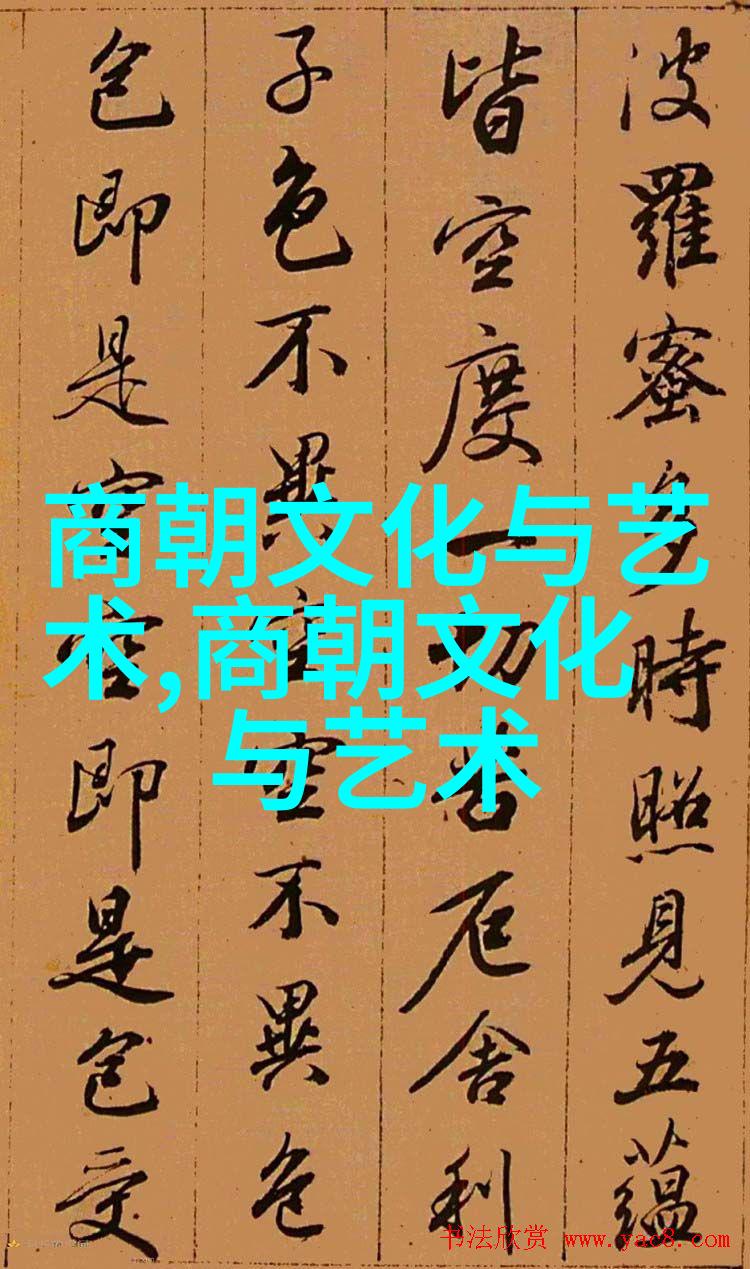 波羅蜜多時照見五蘊
皆空度一切苦厄舍利
子色不異空空不異色
色即是空空即是色受
商朝文化与艺
术,商朝文化
与艺术
书法欣赏 www.yac8.com